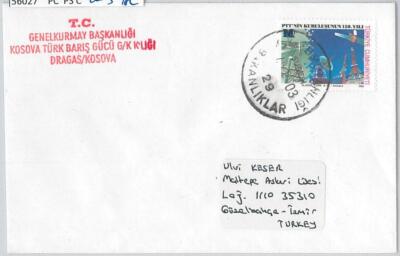 56027 PC PSC
T.C.
GENELKURMAY BAŞKANLIĞI
KOSOVA TÜRK BARIŞ GÜCÜ G/K K'LIĞI
DRAGAS/KOSOVA
PTT'NİN KURULUŞUNUN 150. YILI
TÜRKİYE CUMHURİYETİ
03
29
BAKANLIKLAR
Ulvi KESER
Maltepe Askeri Lisesi
Loj. 11/10 35310
Güzelbahçe-İzmir
TURKEY